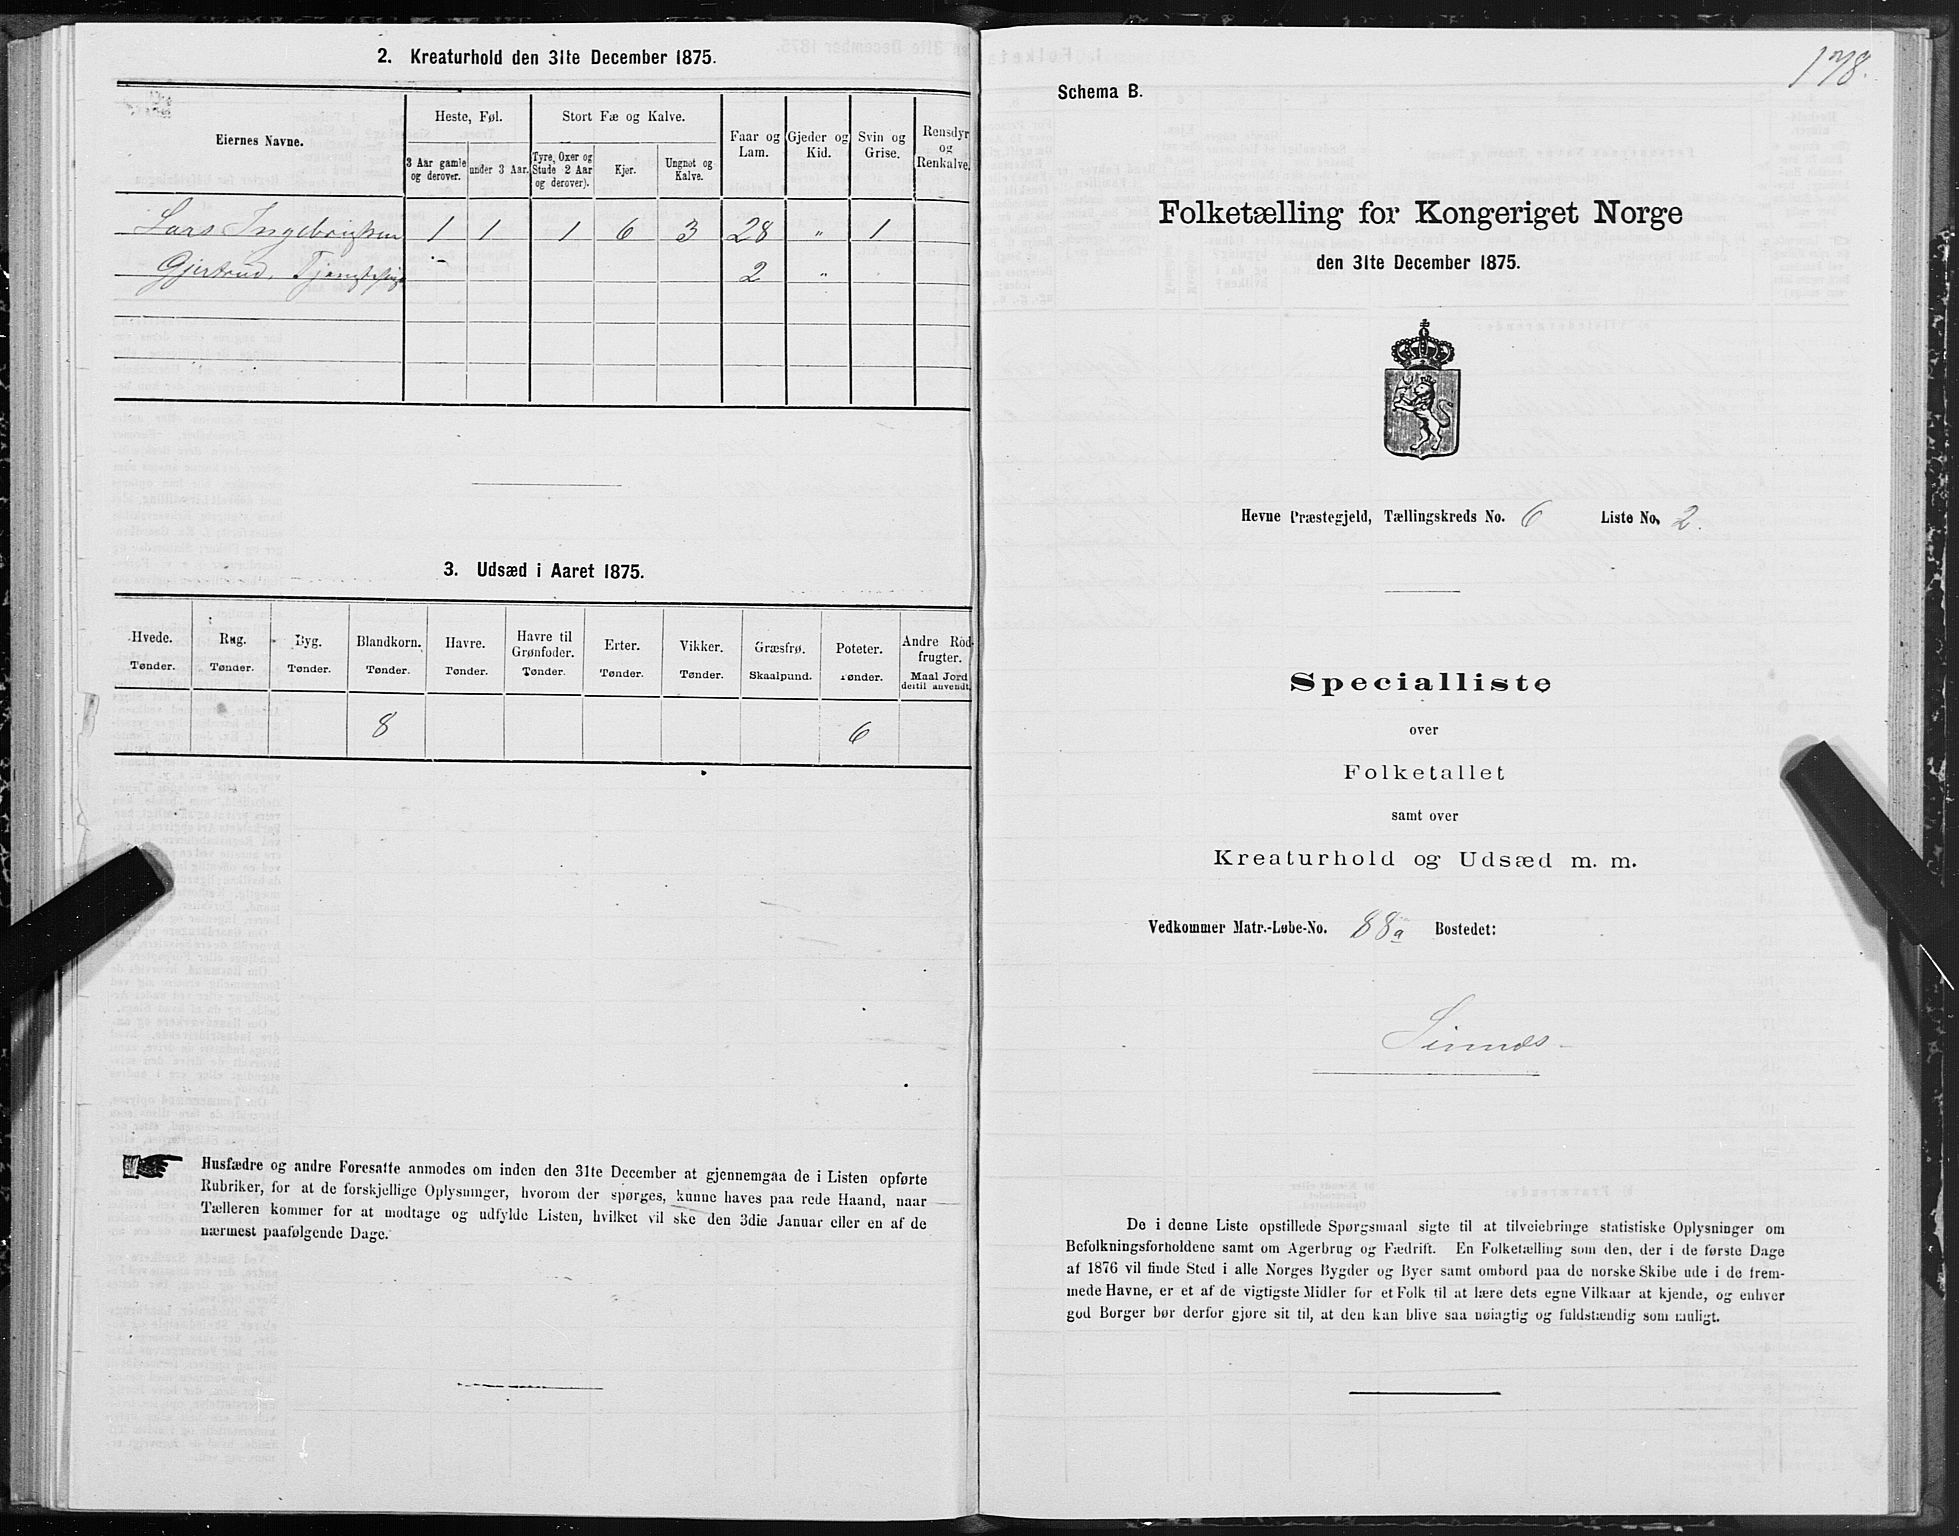 2. Kreaturhold den 31te December 1875.
Eiernes Navne.
Heste, Føl.
Stort Fæ og Kalve.
Faar og Lam.
Gjeder og Kid.
Svin og Grise.
Rensdyr og Renkalve.
3 Aar gamle og derover.
under 3 Aar.
Tyre, Oxer og Stude 2 Aar og derover).
Kjør.
Ungnøt og Kalve.
Lars Ingebrigtsen 1 1 1 6 3 28 " 1
Gjertrud, 2 "
3. Udsæd i Aaret 1875.
Hvede. Rug. Byg. Blandkorn. Havre. Havre til Grønfoder. Erter. Vikker. Græsfrø. Poteter. Andre Rodfrugter.
Tønder. Tønder. Tønder. Tønder. Tønder. Tønder. Tønder. Tønder. Skaalpund. Tønder. Maal Jord dertil anvendt.
8 6
Husfædre og andre Foresatte anmodes om inden den 31te December at gjennemgaa de i Listen opførte
Rubriker, for at de forskjellige Oplysninger, hvorom der spørges, kunne haves paa rede Haand, naar
Tælleren kommer for at modtage og udfylde Listen, hvilket vil ske den 3die Januar eller en af de
nærmest paafølgende Dage.
178.
Schema B.
Folketælling for Kongeriget Norge
den 31te December 1875.
Hevne Præstegjeld, Tællingskreds No. 6 Liste No. 2.
Specialliste
over
Folketallet
samt over
Kreaturhold og Udsæd m. m.
Vedkommer Matr.-Løbe-No. 88a Bostedet:
Sinnæs
De i denne Liste opstillede Spørgsmaal sigte til at tilveiebringe statistiske Oplysninger om
Befolkningsforholdene samt om Agerbrug og Fædrift. En Folketælling som den, der i de første Dage
af 1876 vil finde Sted i alle Norges Bygder og Byer samt ombord paa de norske Skibe ude i de frem-
mede Havne, er et af de vigtigste Midler for et Folk til at lære dets egne Vilkaar at kjende, og enhver
god Borger bør derfor gjøre sit til, at den kan blive saa nøiagtig og fuldstændig som muligt.